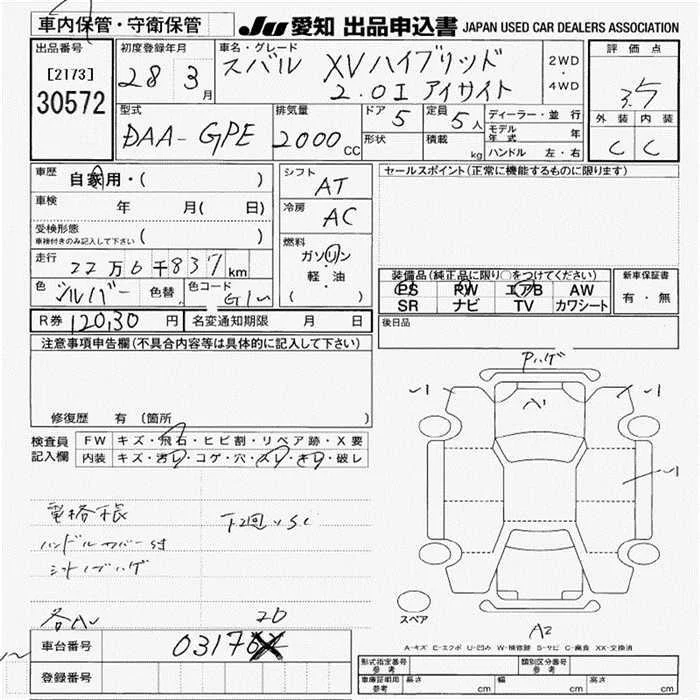 車内保管・守衛保管
JU 愛知 出品申込書 JAPAN USED CAR DEALERS ASSOCIATION
出品番号
[2173]
30572
初度登録年月
28 3月
車名・グレード
スバル XVハイブリッド
2.0I アイサイト
2WD
・
4WD
評価点
3.5
外装 内装
C C
型式
DAA-GPE
排気量
2000cc
ドア
5
形状
定員
5人
積載
kg
ディーラー・並行
モデル年式 年
ハンドル 左・右
車歴 自家用・( )
車検 年 月( 日)
受検形態
車検付きのみ記入して下さい ( )
走行 22万6千837km
色 シルバー 色替 色コード G1U
R券 12030円 名変通知期限 月 日
シフト
AT
冷房
AC
燃料
ガソリン
・
軽・油
( )
セールスポイント(正常に機能するものに限ります)
装備品(純正品に限り○をつけてください)
PS PW エアB AW
SR ナビ TV カワシート
新車保証書
有・無
後日品
注意事項申告欄(不具合内容等は具体的に記入して下さい)
修復歴 有 (箇所
検査員記入欄
FW キズ・飛石・ヒビ割・リペア跡・X要
内装 キズ・汚れ・コゲ・穴・スレ・キレ・破レ
Pハゲ
ハンドルカバー付
各AU
20
スペア
A2
A-キズ E-エクボ U-凹み W-補修跡 S-サビ C-腐食 XX-交換済
車台番号 03176
登録番号
形式指定番号 参考
類別区分番号 参考
車庫証明用 参考 長さ cm 幅 cm 高さ cm